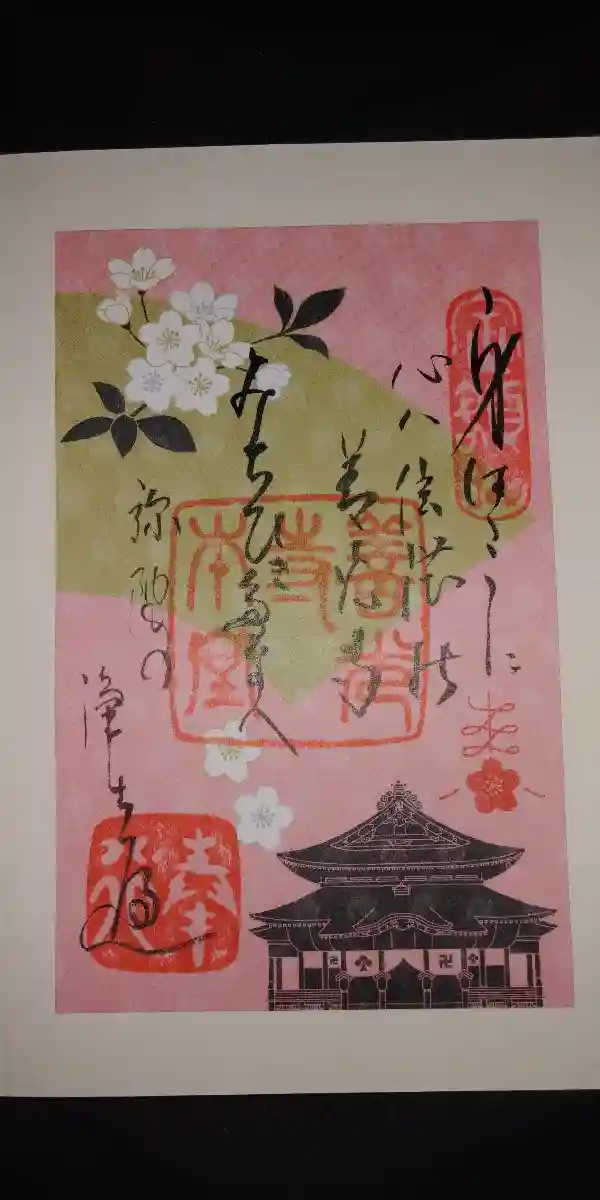 身はこゝに
心ハ信濃能
善光寺
みちびき多まへ
弥陀の
浄土遍
善光
寺
本堂